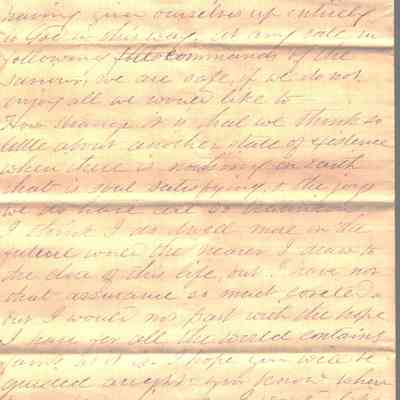 having given ourselves up entirely
to God in this way, at any rate in
following the commands of the
Saviour, we are safe, if we do not
enjoy all we would like to
How strange it is that we think so
little about another state of existence
when there is nothing on earth
that is soul satisfying, & the joys
we do have are so
I think I do dwell more in the
future world the nearer I draw to
the close of this life, but I have not
that assurance so much coveted
but I would not part with the hope
I have for all the world contains
faint as it is. I hope you will be
guided aright. You know where